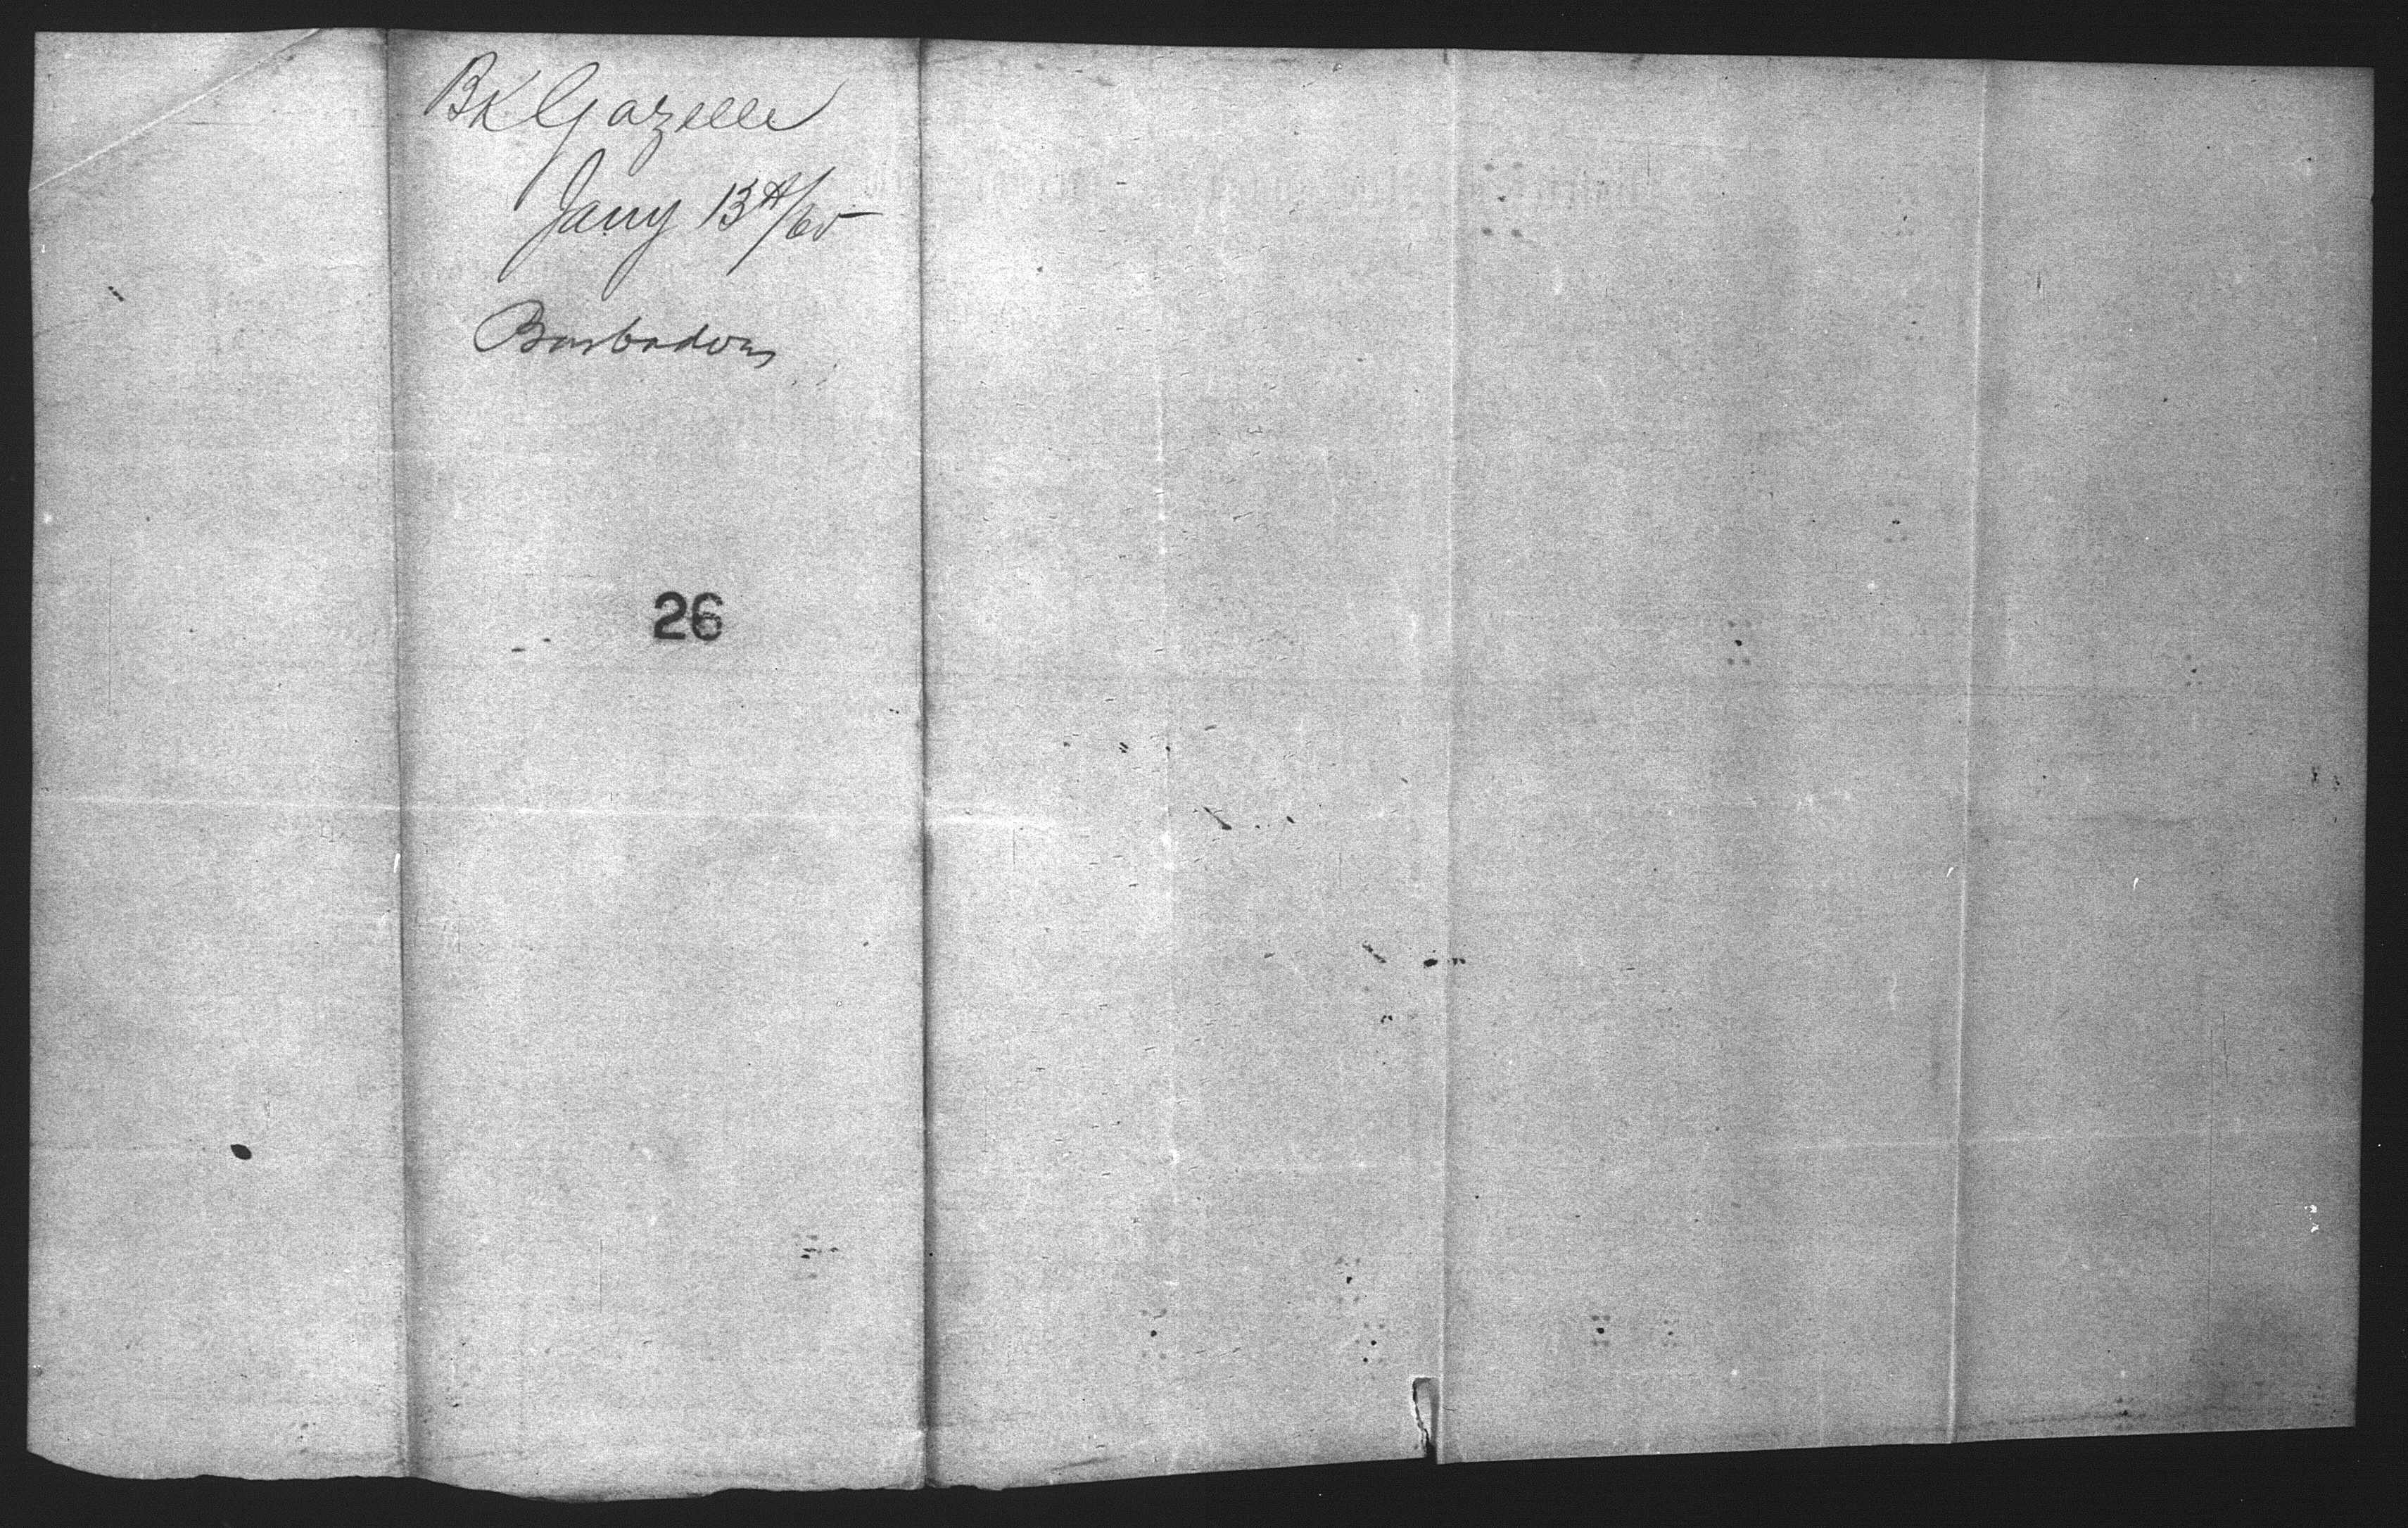 Bk Gazelle
Jany 13th/65
Barbadoes
26